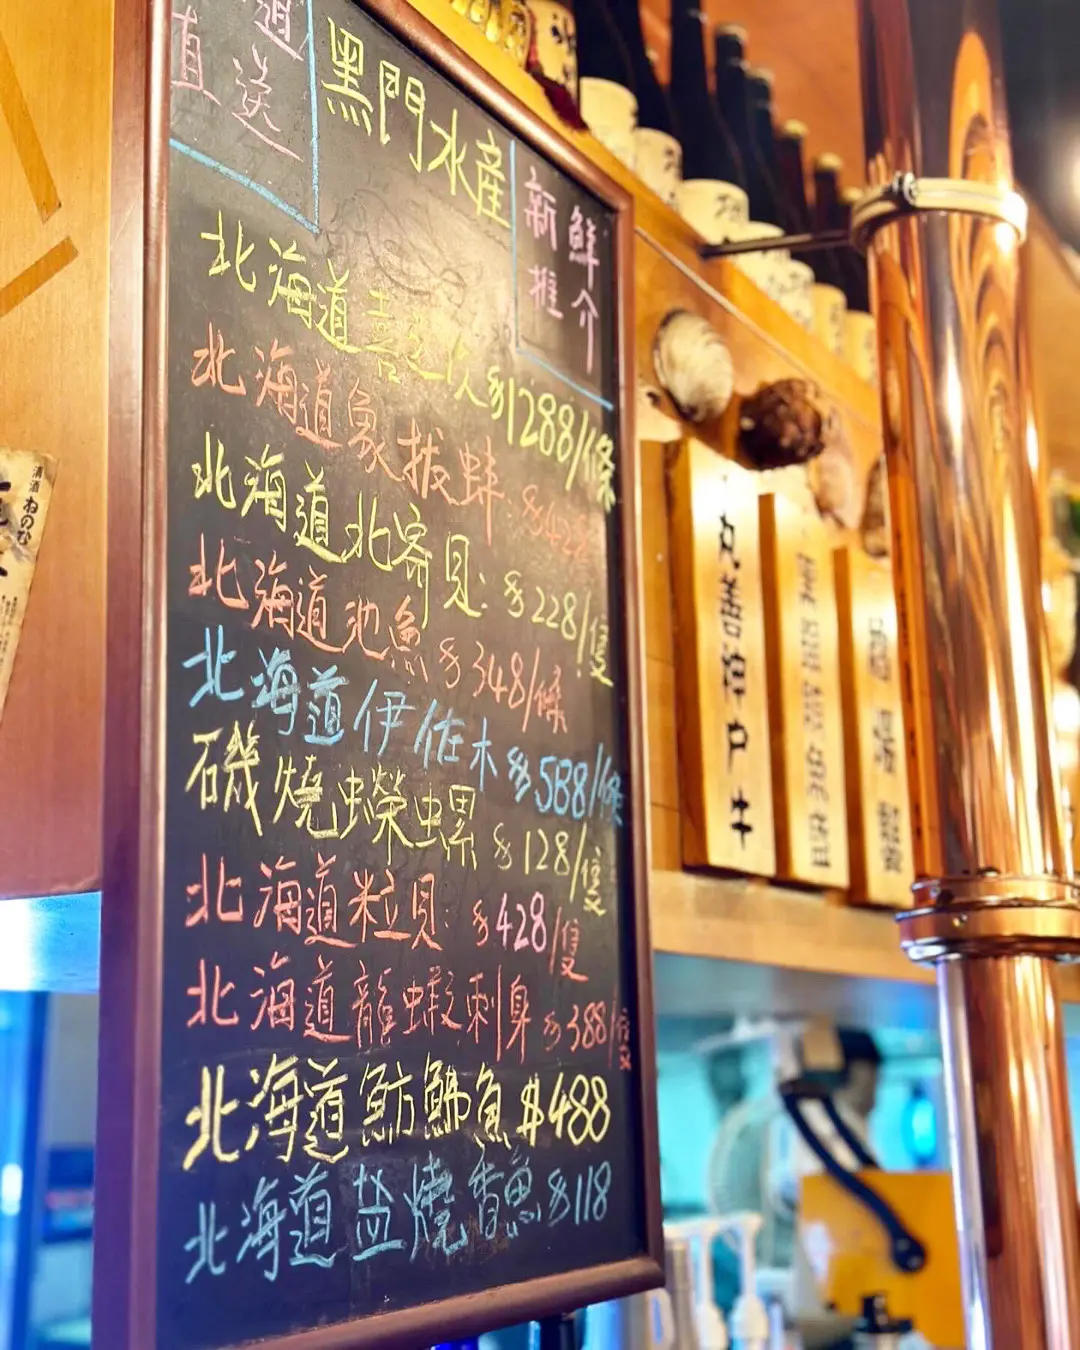 道
直送
黑門水産
新鮮
推介
北海道喜之次$1288/條
北海道象拔蚌:$428
北海道北寄貝:$228/隻
北海道池魚$348/條
北海道伊佐木$588/條
磯燒蠑螺$128/隻
北海道粒貝:$428/隻
北海道龍蝦刺身$388/隻
北海道魴鮄魚$488
北海道盐燒香魚$118
丸善神戶牛
清酒